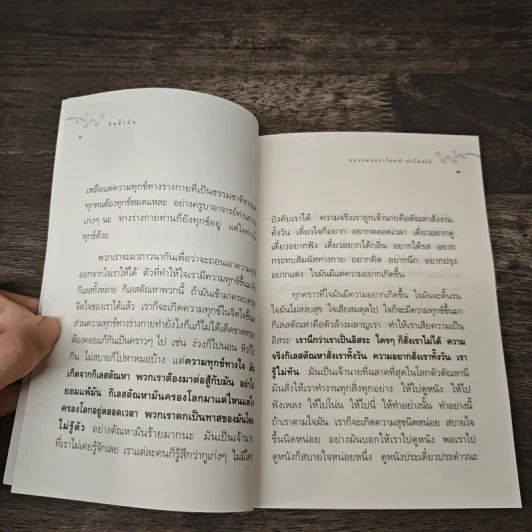 จิตตั้งมั่น
๖
เหลือแต่ความทุกข์ทางร่างกายที่เป็นธรรมชาติธรรมดา
ทุกคนต้องทุกข์หมดแหละ อย่างครูบาอาจารย์ท่านภาวนา
เก่งๆ นะ ทางร่างกายท่านก็ยังทุกข์อยู่ แต่ใจท่านไม่
ทุกข์ด้วย
พวกเราจะมาภาวนากันเพื่อว่าจะถอนเอาความทุกข์
ออกจากใจเราให้ได้ ตัวที่ทำให้ใจเรามีความทุกข์ขึ้นมาคือ
กิเลสทั้งหลาย กิเลสตัณหาพวกนี้ ถ้ามันเข้ามาครอบครอง
จิตใจของเราได้แล้ว เราก็จะเกิดความทุกข์ในจิตใจขึ้น
ส่วนความทุกข์ทางร่างกายทำยังไงก็แก้ไม่ได้เด็ดขาดหรอก
ต้องคอยแก้กันเป็นคราวๆ ไป เช่น ง่วงก็ไปนอน หิวก็ไป
กิน ไม่สบายก็ไปหาหมอบ้าง แต่ความทุกข์ทางใจ มัน
เกิดจากกิเลสตัณหา พวกเราต้องมาต่อสู้กับมัน อย่าไป
ยอมแพ้มัน กิเลสตัณหามันครองโลกมาแต่ไหนแต่ไร
ครองโลกอยู่ตลอดเวลา พวกเราตกเป็นทาสของมันโดย
ไม่รู้ตัว อย่างตัณหามันร้ายมากนะ มันเป็นเจ้านาย
ที่เราไม่เคยรู้จักเลย เราแต่ละคนก็รู้สึกว่ากูเก่งๆ ไม่มีใคร
หลวงพ่อปราโมทย์ ปาโมชฺโช
๗
บังคับเราได้ ความจริงเราถูกเจ้านายคือตัณหาสั่งงาน
ทั้งวัน เดี๋ยวใจก็อยาก อยากตลอดเวลา เดี๋ยวอยากดู
เดี๋ยวอยากฟัง เดี๋ยวอยากได้กลิ่น อยากได้รส อยาก
กระทบสัมผัสทางกาย อยากคิด อยากนึก อยากปรุง
อยากแต่ง ใจมันมีแต่ความอยากเกิดขึ้น
ทุกคราวที่ใจมันมีความอยากเกิดขึ้น ใจมันจะดิ้นรน
ใจมันไม่สงบสุข ใจเสียสมดุลไป ใจก็จะมีความทุกข์ขึ้นมา
กิเลสตัณหาคือตัวล้างผลาญเรา ทำให้เราเสียความเป็น
อิสระ เรานึกว่าเราเป็นอิสระ ใครๆ ก็สั่งเราไม่ได้ ความ
จริงกิเลสตัณหาสั่งเราทั้งวัน ความอยากสั่งเราทั้งวัน เรา
รู้ไม่ทัน มันเป็นเจ้านายที่ฉลาดที่สุดในโลกตัวตัณหานี่
มันสั่งให้เราทำงานทุกสิ่งทุกอย่าง ให้ไปดูหนัง ให้ไป
ฟังเพลง ให้ไปโน่น ให้ไปนี่ ให้ทำอย่างนั้น ทำอย่างนี้
ถ้าเราตามใจมัน เราก็จะเกิดความสุขนิดหน่อย สบายใจ
ขึ้นนิดหน่อย อย่างมันบอกให้เราไปดูหนัง พอเราไป
ดูหนังก็สบายใจหน่อยหนึ่ง ดูหนังประเดี๋ยวประด๋าวนะ